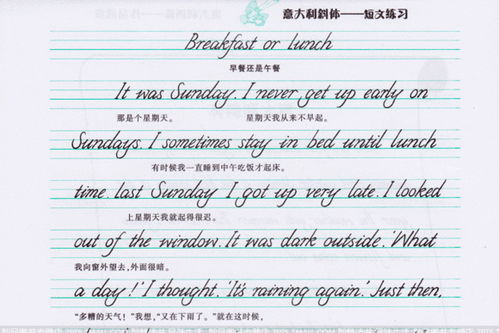 意大利斜体——短文练习
Breakfast or lunch
早餐还是午餐
It was Sunday. I never get up early on
那是个星期天。 星期天我从来不早起。
Sundays. I sometimes stay in bed until lunch
有时候我一直睡到中午吃饭才起床。
time. last Sunday I got up very late. I looked
上星期天我就起得很迟。
out of the window. It was dark outside. 'What
我向窗外望去,外面很暗。
a day!' I thought. 'It's raining again.' Just then,
“多糟的天气！”我想,“又在下雨了。”就在这时候,